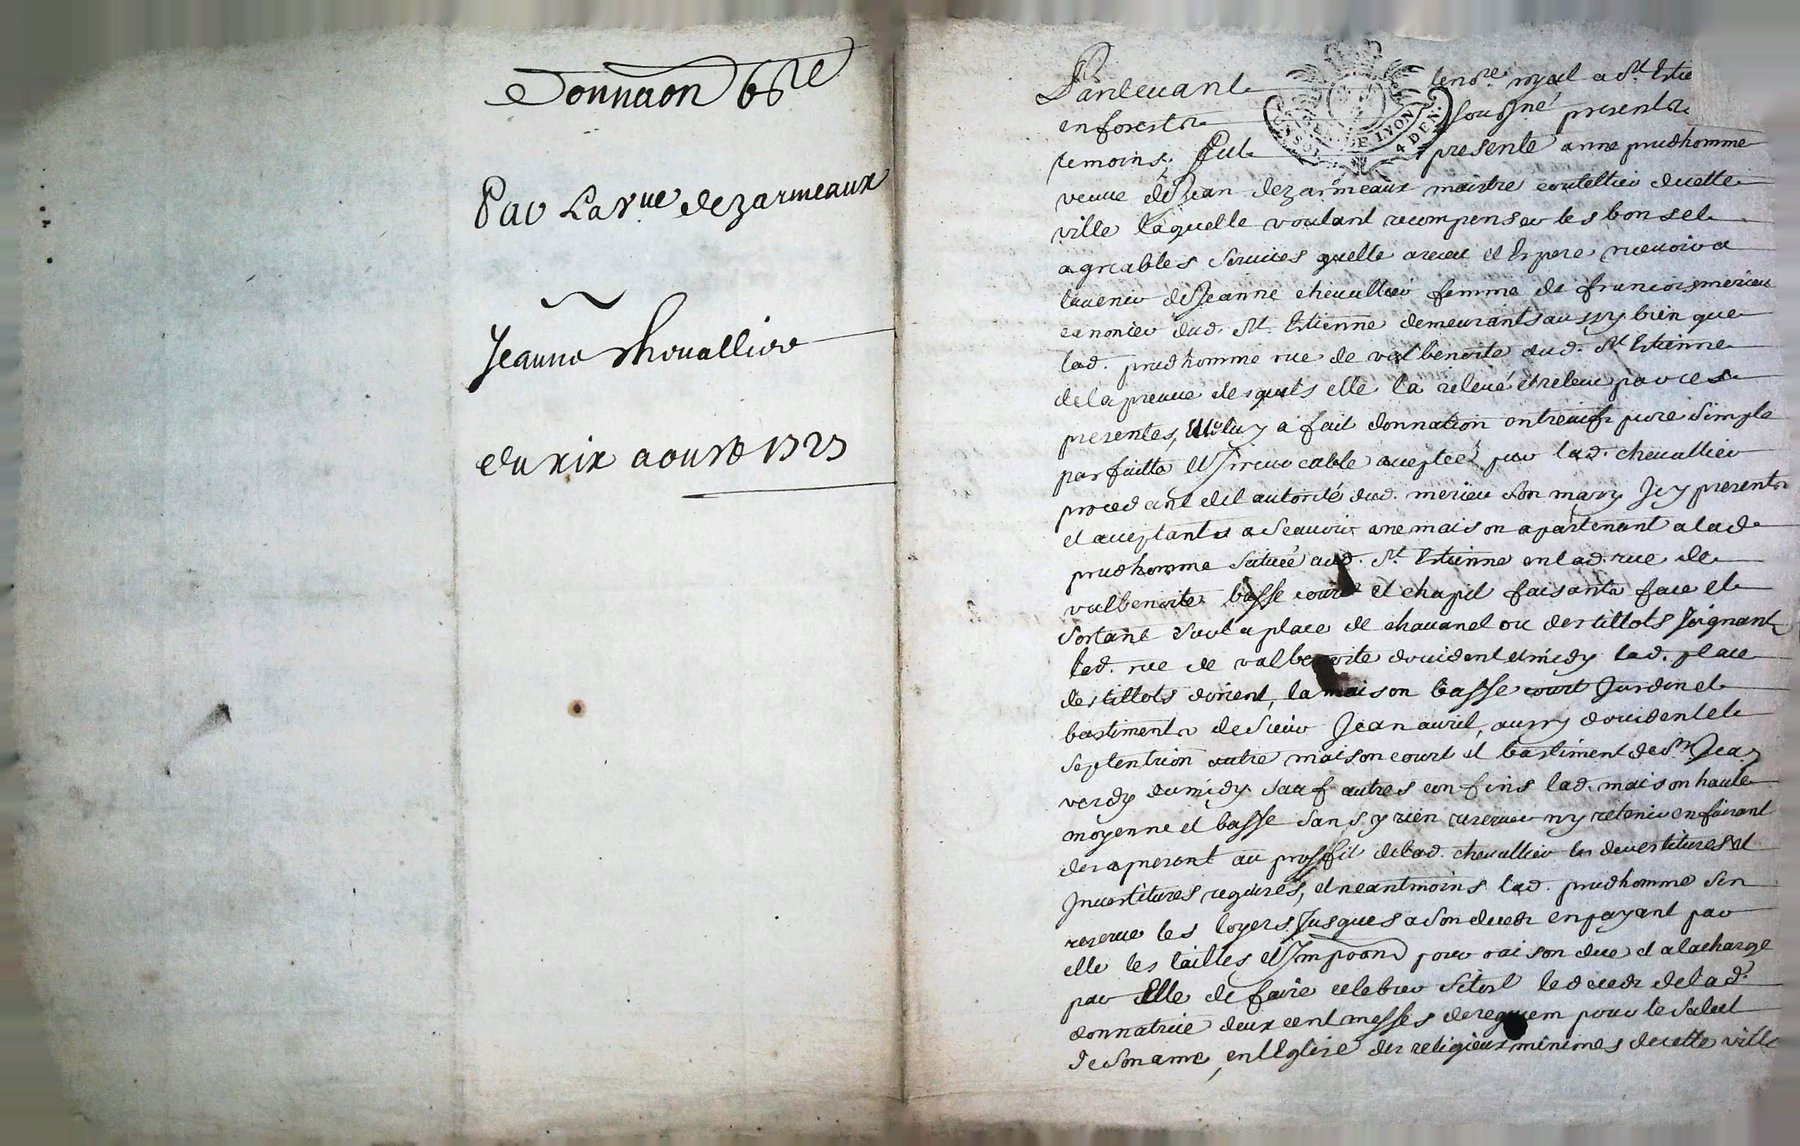 Donnaon
Par La Vue dezarmeaux
Jeanne Chevallier
du xix aoust 1727
Pardevant le no.re royal a St. Estie
en forest soussigné present
temoins, fut presente anne prudhomme
veuve de Jean dezarmeaux maistre coutellier de cette
ville laquelle voulant recompenser les bons et
agreables services quelle a receu et Espere recevoir a
lavenir de Jeanne chevallier femme de francois merieu
canonier dud. St. Estienne demeurants aussy bien que
lad. prudhomme rue de valbenoite dud. St. Estienne
de la preuve desquels elle la relevé et releve par ces
presentes, luy a fait donnation entrevifs pure simple
parfaitte et Irrevocable aceptée par lad. chevallier
procedant de l autorité dud. merieu son mary Icy present
et acceptant a scavoir une maison apartenant a lad.
prudhomme scituée aud. St. Estienne en lad. rue de
valbenoite basse court et chapit faisant face et
sortant sur la place de chavanel ou des tillots Joignant
lad. rue de valbenoite doccident et midy lad. place
des tillots dorient, la maison basse court Jardin et
bastiments de Sieur Jean avril, aussy doccident et
septentrion autre maison court et bastiment de Sr. Jean
verdy du midy sauf autres confins lad. maison haute
moyenne et basse sans y rien reserver ny retenir en faisant
des apresent au proffit de lad. chevallier les devestitures et
Investitures requises, et neantmoins lad. prudhomme s en
reserve les loyers Jusques a son deceds en payant par
elle les tailles et Impoons pour raison due et a la charge
par Elle de faire celebrer sitost le deceds de lad.
donnatrice deux cent messes de requiem pour le salut
de son ame, en l Eglise des religieux minimes de cette ville
GEN DE LYON
4 DEN.